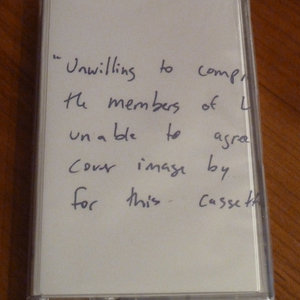 "Unwilling to comp
the members of
unable to agree
cover image by
for this cassett